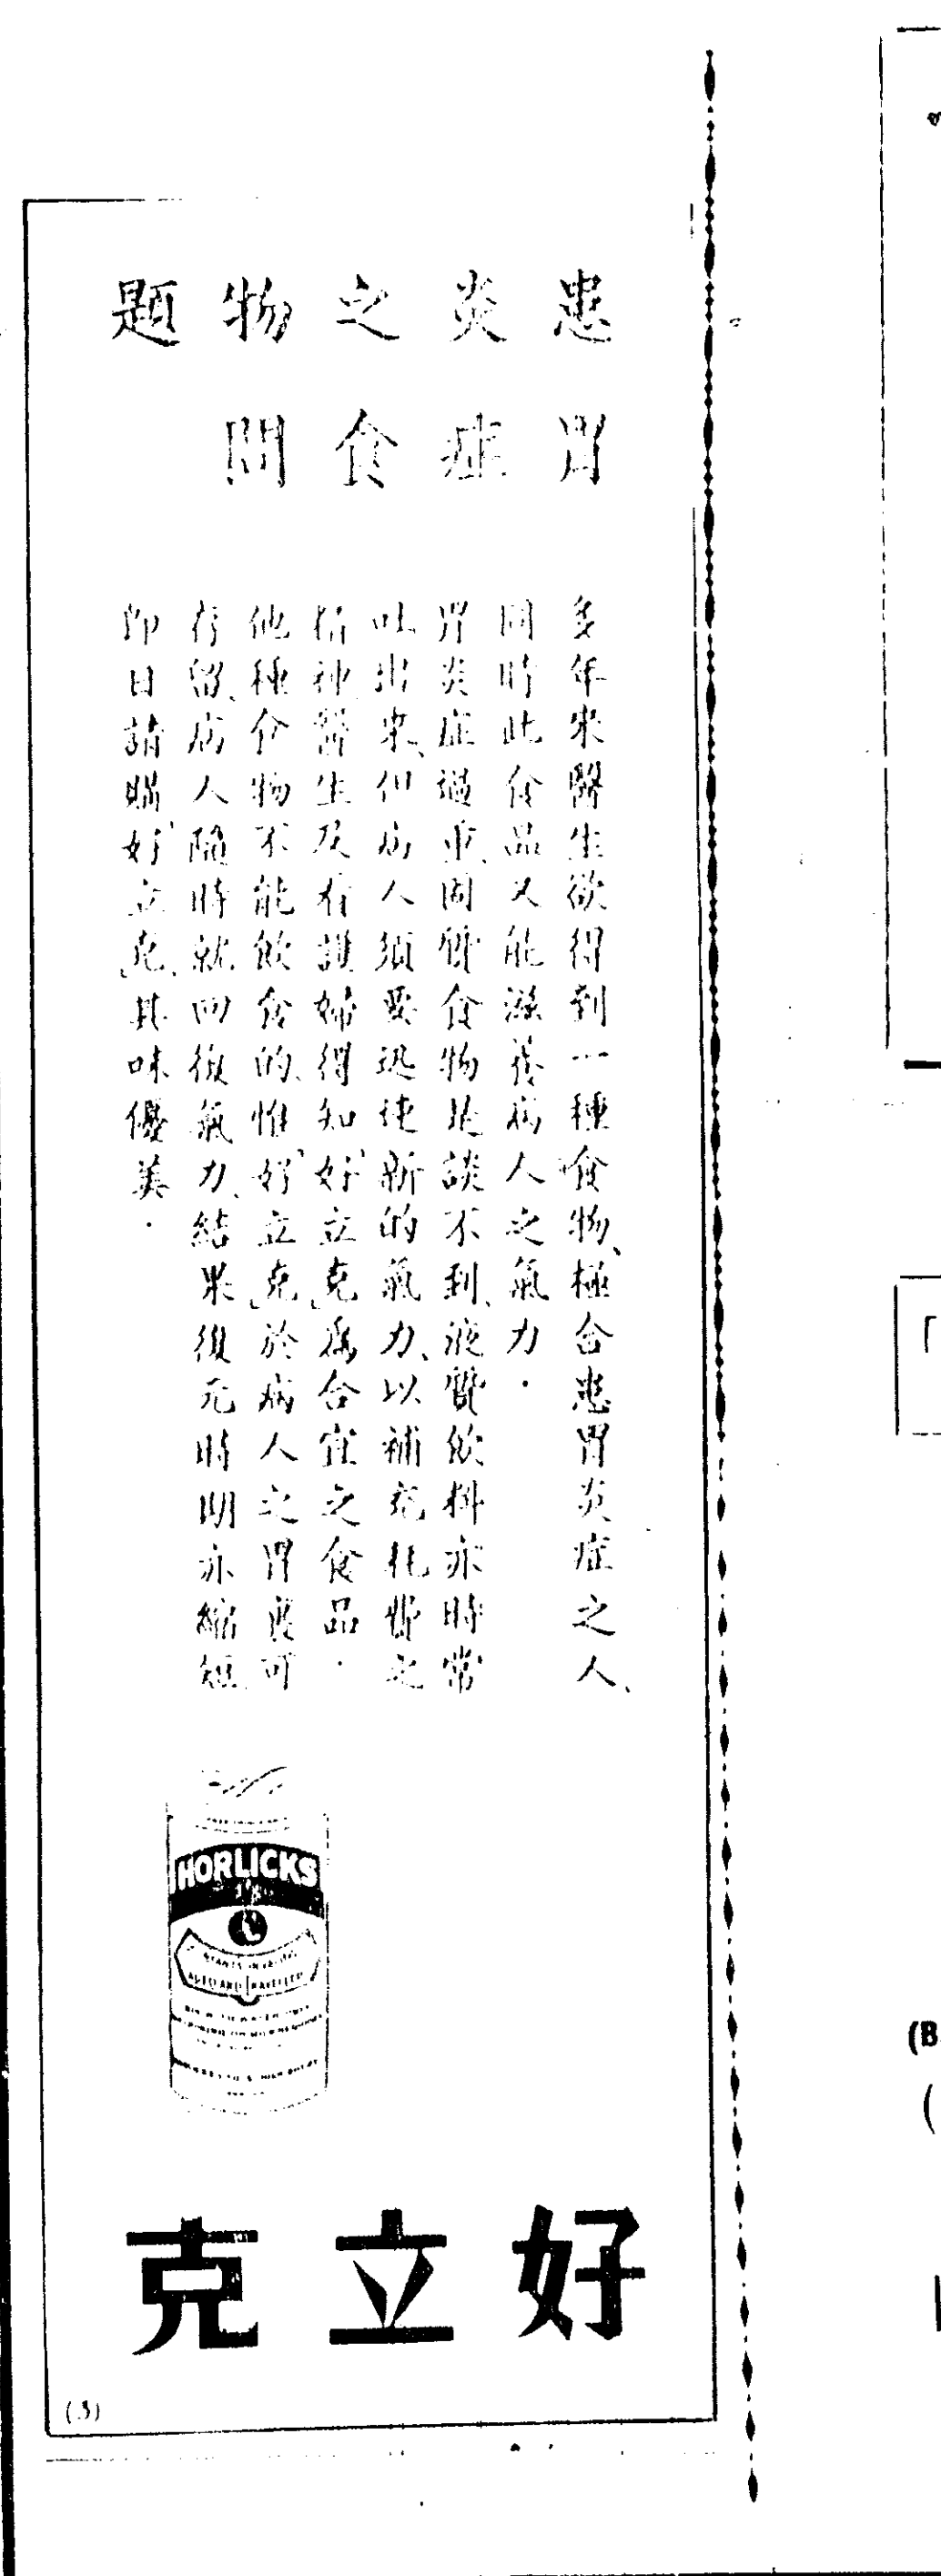 患胃
炎症
之食
物問
題
多年來醫生欲得到一種食物、極合患胃炎症之人、
同時此食品又能滋養病人之氣力．
胃炎症過重、固體食物是談不到、液質飲料亦時常
吐出來、但病人須要迅速新的氣力、以補充耗費之
精神、醫生及看護婦得知「好立克」為合宜之食品．
他種食物不能飲食的、惟「好立克」於病人之胃裏可
存留、病人隨時就回復氣力、結果復元時期亦縮短、
即日請購「好立克」、其味優美．
HORLICKS
好立克
(3)
(B